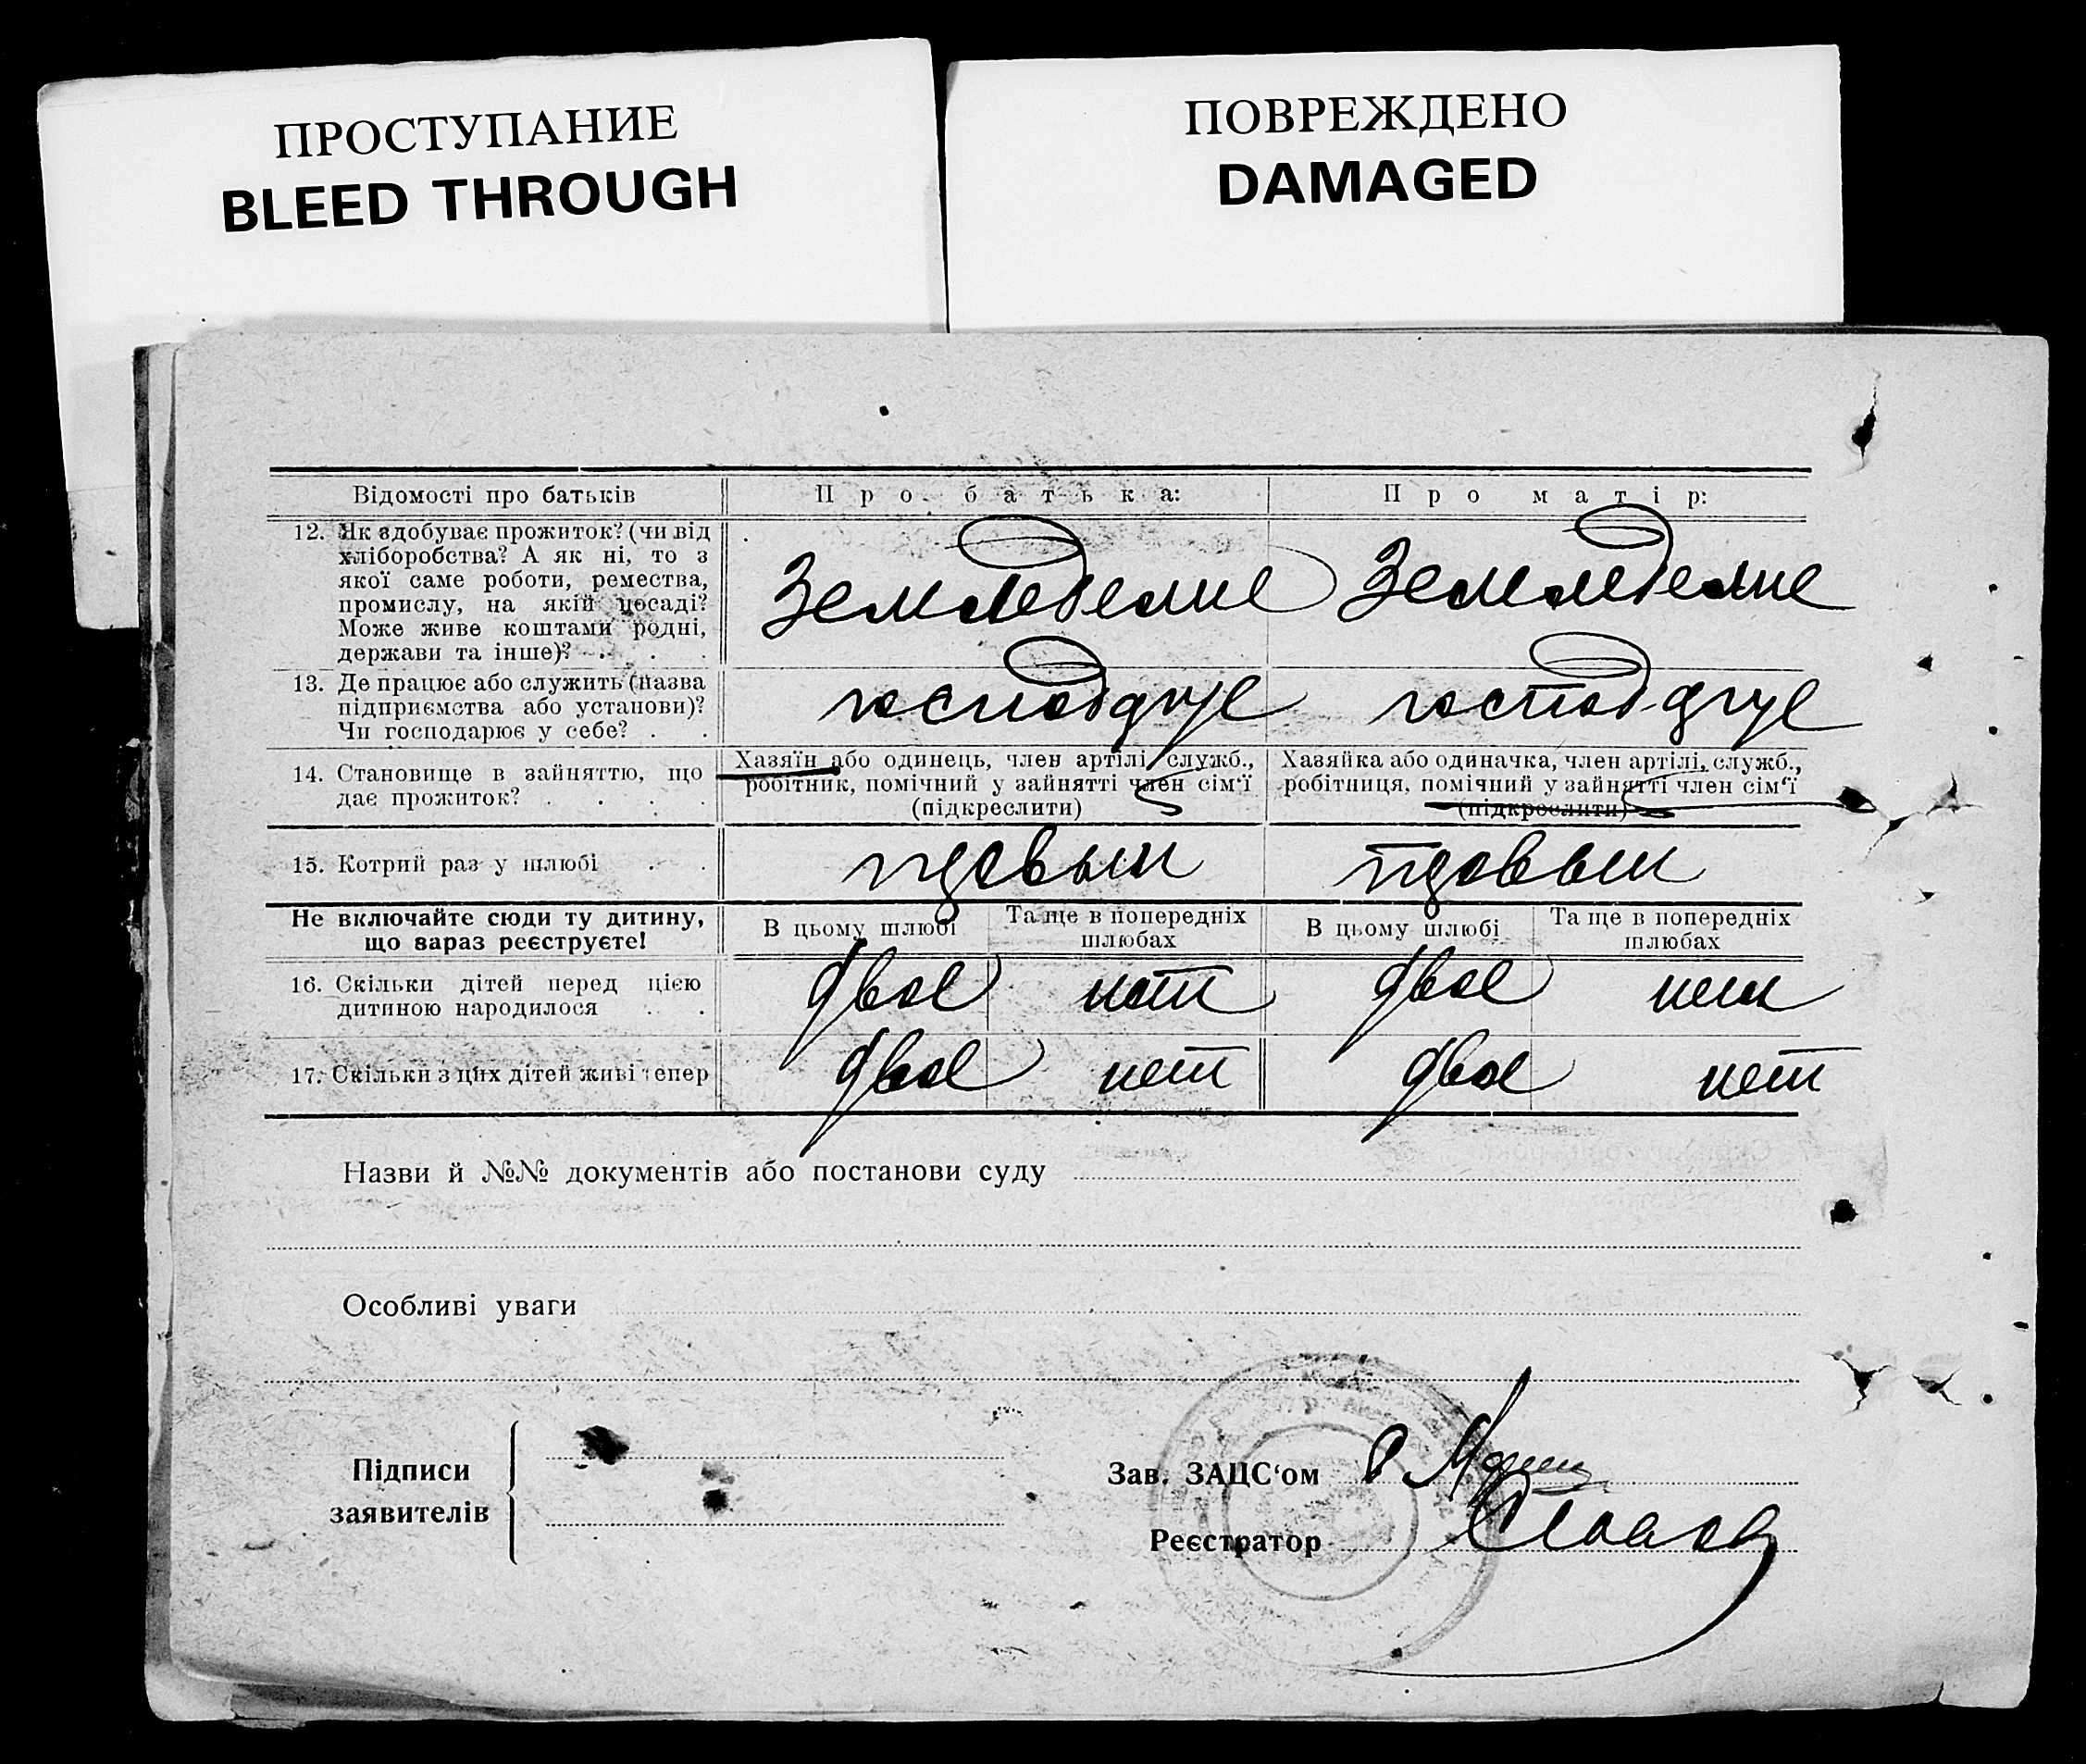 ПРОСТУПАНИЕ
BLEED THROUGH
ПОВРЕЖДЕНО
DAMAGED
Відомості про батьків Про батька: Про матір:
12. Як здобуває прожиток? (чи від
хліборобства? А як ні, то з
якої саме роботи, ремества,
промислу, на якій посаді?
Може живе коштами родні,
держави та інше)? . . .
Земледелие Земледелие
13. Де працює або служить (назва
підприємства або установи)?
Чи господарює у себе? . .
14. Становище в зайняттю, що
дає прожиток? . . . .
Хазяїн або одинець, член артілі, служб.,
робітник, помічний у зайнятті член сім'ї
(підкреслити)
Хазяйка або одиначка, член артілі, служб.,
робітниця, помічний у зайнятті член сім'ї
(підкреслити)
15. Котрий раз у шлюбі . .
Не включайте сюди ту дитину,
що зараз реєструєте!
В цьому шлюбі
Та ще в попередніх
шлюбах
В цьому шлюбі
Та ще в попередніх
шлюбах
16. Скільки дітей перед цією
дитиною народилося . .
двое нет двое нет
17. Скільки з цих дітей живі тепер двое нет двое нет
Назви й №№ документів або постанови суду
Особливі уваги
Підписи
заявителів
Зав. ЗАЦС'ом
Реєстратор